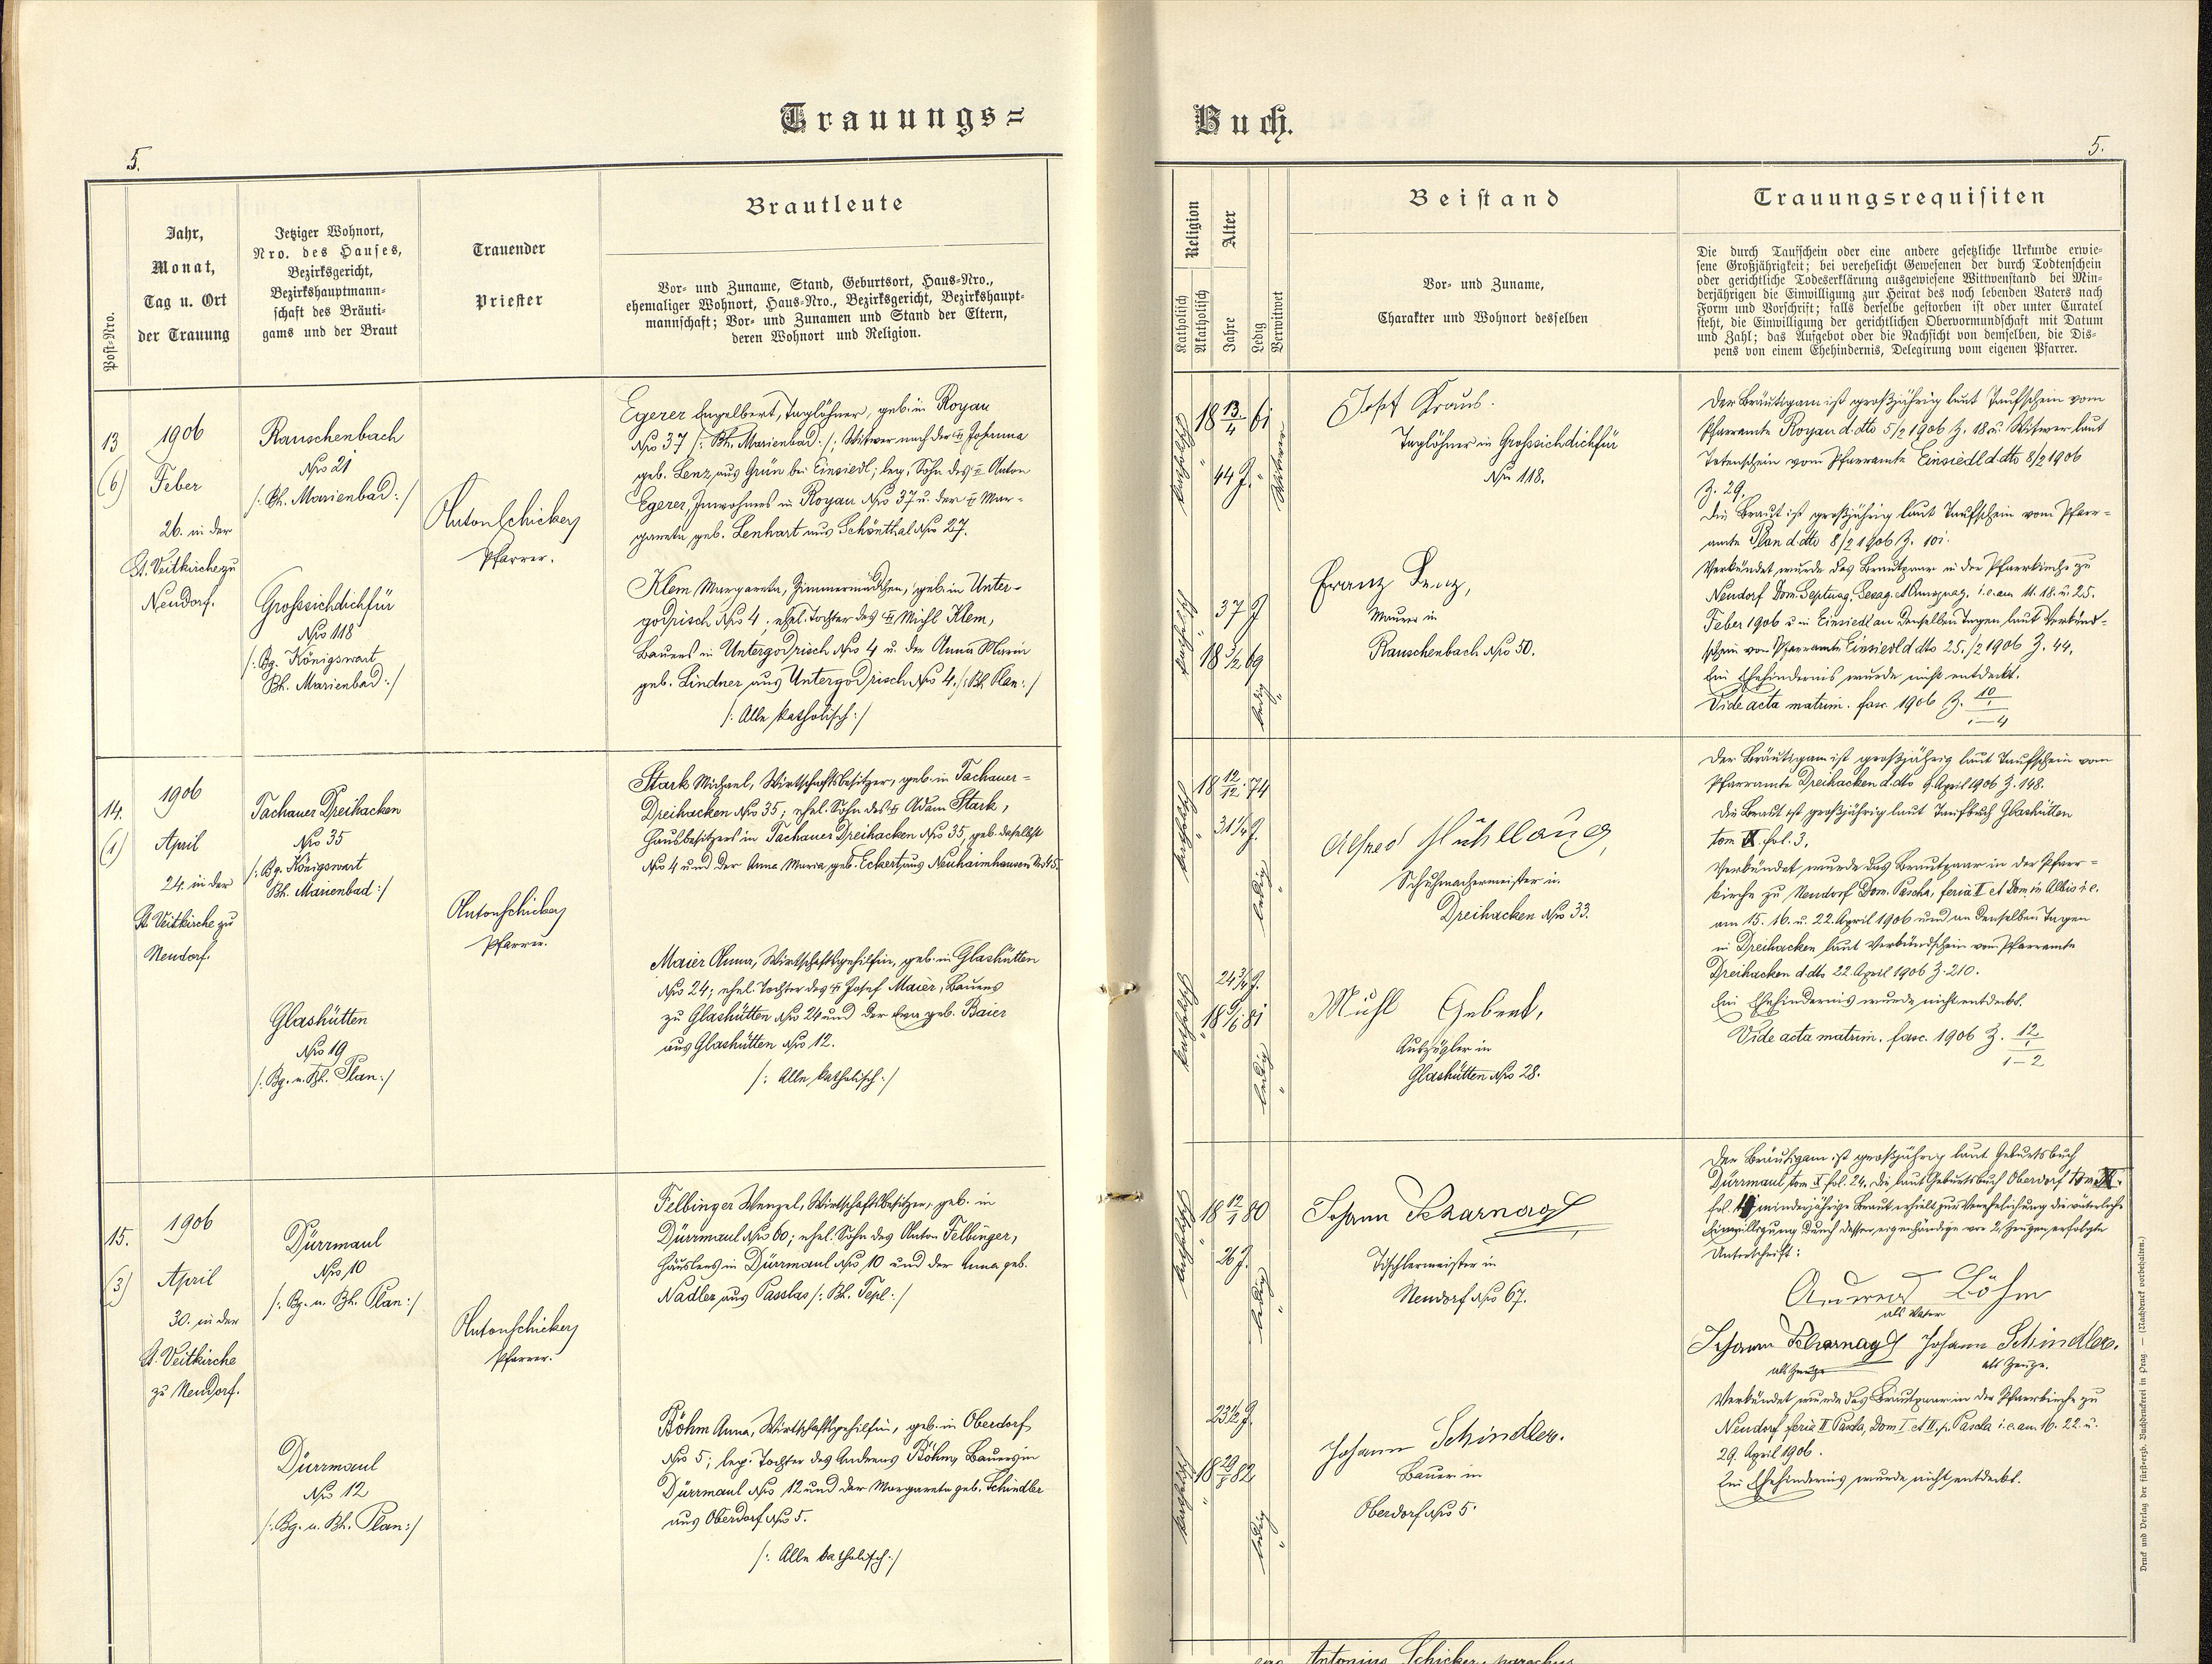 Trauungs=
Buch.
5.
5.
Post-Nro.
Jahr,
Monat,
Tag u. Ort
der Trauung
Jetziger Wohnort,
Nro. des Hauses,
Bezirksgericht,
Bezirkshauptmann-
schaft des Bräuti-
gams und der Braut
Trauender
Priester
Brautleute
Vor- und Zuname, Stand, Geburtsort, Haus-Nro.,
ehemaliger Wohnort, Haus-Nro., Bezirksgericht, Bezirkshaupt-
mannschaft; Vor- und Zunamen und Stand der Eltern,
deren Wohnort und Religion.
Religion
Katholisch
Akatholisch
Alter
Jahre
Ledig
Verwitwet
Beistand
Vor- und Zuname,
Charakter und Wohnort desselben
Trauungsrequisiten
Die durch Taufschein oder eine andere gesetzliche Urkunde erwie-
sene Großjährigkeit; bei verehelicht Gewesenen der durch Todtenschein
oder gerichtliche Todeserklärung ausgewiesene Wittwenstand bei Min-
derjährigen die Einwilligung zur Heirat des noch lebenden Vaters nach
Form und Vorschrift; falls derselbe gestorben ist oder unter Curatel
steht, die Einwilligung der gerichtlichen Obervormundschaft mit Datum
und Zahl; das Aufgebot oder die Nachsicht von demselben, die Dis-
pens von einem Ehehindernis, Delegirung vom eigenen Pfarrer.
13
(6)
1906
Feber
26. in der
St. Veitkirche zu
Neudorf.
Rauschenbach
Nro 21
/: Bh. Marienbad :/
Grossichdichfür
Nro 118
/: Bg. Königswart
Bh. Marienbad :/
Anton Schickerz
Pfarrer.
Egerer Engelbert, Taglöhner, geb. in Royau
Nro 37 /: Bh. Marienbad :/; Witwer nach der Johanna
geb. Lenz aus Grün bei Einsiedl; leg. Sohn des Anton
Egerer, Inwohners in Royau Nro 37 u. der Mar-
gareta geb. Lenhart aus Schönthal Nro 27.
Klem Margareta, Zimmermädchen, geb. in Unter-
godrisch Nro 4; ehel. Tochter des Michl Klem,
Bauers in Untergodrisch Nro 4 u. der Anna Maria
geb. Lindner aus Untergodrisch Nro 4. /: Bh. Plan :/
/: Alle katholisch :/
katholisch
18 13/4 61
44 J.
Witwer
katholisch
37 J
18 3/2 69
ledig
Josef Kraus.
Taglöhner in Grossichdichfür
Nro 118.
Franz Lenz,
Maurer in
Rauschenbach Nro 50.
Der Bräutigam ist großjährig laut Taufschein vom
Pfarramte Royau d.dto 5/2 1906 Z. 18 u. Witwer laut
Totenschein vom Pfarramte Einsiedl d.dto 8/2 1906
Z. 29.
Die Braut ist großjährig laut Taufschein vom Pfarr-
amte Plan d.dto 8/2 1906 Z. 101.
Verkündet wurde das Brautpaar in der Pfarrkirche zu
Neudorf Dom. Septuag. Sexag. et Quinquag. i.e. am 11. 18. u. 25.
Feber 1906 u. in Einsiedl an denselben Tagen laut Verkünd-
schein vom Pfarramte Einsiedl d.dto 25./2 1906 Z. 44.
Ein Ehehindernis wurde nicht entdeckt.
Vide acta matrim. fasc. 1906 Z. 10/1-4
14.
(1)
1906
April
24. in der
St. Veitkirche zu
Neudorf.
Tachauer Dreihacken
Nro 35
/: Bg. Königswart
Bh. Marienbad :/
Glashütten
Nro 19
/: Bg. u. Bh. Plan :/
Anton Schickerz
Pfarrer.
Stark Michael, Wirtschaftsbesitzer, geb. in Tachauer-
Dreihacken Nro 35; ehel. Sohn des Adam Stark,
Hausbesitzers in Tachauer Dreihacken Nro 35, geb. daselbst
Nro 4 und der Anna Maria, geb. Eckert aus Neuhaimhausen Nro 45.
Maier Anna, Wirtschaftsgehilfin, geb. in Glashütten
Nro 24; ehel. Tochter des Josef Maier, Bauers
zu Glashütten Nro 24 und der Eva geb. Baier
aus Glashütten Nro 12.
/: Alle katholisch :/
katholisch
18 12/12 74
31 1/4 J.
ledig
katholisch
24 3/4 J.
18 81
ledig
Alfred
Schuhmachermeister in
Dreihacken Nro 33.
Mühl Gebert,
Auszügler in
Glashütten Nro 28.
Der Bräutigam ist großjährig laut Taufschein vom
Pfarramte Dreihacken d.dto 9. April 1906 Z. 148.
Die Braut ist großjährig laut Taufbuch Glashütten
tom fol. 3.
Verkündet wurde das Brautpaar in der Pfarr-
kirche zu Neudorf Dom. Pascha, feria II et Dom. in Albis i.e.
am 15. 16. u. 22. April 1906 und an denselben Tagen
in Dreihacken laut Verkündschein vom Pfarramte
Dreihacken d.dto 22. April 1906 Z. 210.
Ein Ehehindernis wurde nicht entdeckt.
Vide acta matrim. fasc. 1906 Z. 12/1-2
15.
(3)
1906
April
30. in der
St. Veitkirche
zu Neudorf.
Dürrmaul
Nro 10
/: Bg. u. Bh. Plan :/
Dürrmaul
Nro 12
/: Bg. u. Bh. Plan :/
Anton Schickerz
Pfarrer.
Felbinger Wenzel, Wirtschaftsbesitzer, geb. in
Dürrmaul Nro 60; ehel. Sohn des Anton Felbinger,
Häuslers in Dürrmaul Nro 10 und der Anna geb.
Nadler aus Passlas /: Bh. Tepl :/
Böhm Anna, Wirtschaftsgehilfin, geb. in Oberdorf
Nro 5; leg. Tochter des Andreas Böhm, Bauers in
Dürrmaul Nro 12 und der Margareta geb. Schindler
aus Oberdorf Nro 5.
/: Alle katholisch :/
katholisch
18 12/1 80
26 J.
ledig
katholisch
23 1/2 J.
18 82
ledig
Johann
Tischlermeister in
Neudorf Nro 67.
Johann Schindler.
Bauer in
Oberdorf Nro 5.
Der Bräutigam ist großjährig laut Geburtsbuch
Dürrmaul tom. X fol. 24. Die laut Geburtsbuch Oberdorf tom
fol. minderjährige Braut erhielt zur Verehelichung die väterliche
Einwilligung durch dessen eigenhändige vor 2 Zeugen erfolgte
Unterschrift:
Andreas Böhm
als Vater
Johann Johann Schindler.
als Zeuge als Zeuge.
Verkündet wurde das Brautpaar in der Pfarrkirche zu
Neudorf feria II Pascha, Dom I. et II. p. Pascha i.e. am 16. 22. u.
29. April 1906.
Ein Ehehindernis wurde nicht entdeckt.
Antonius Schicker, parochus
Druck und Verlag der fürsterzb. Buchdruckerei in Prag — (Nachdruck vorbehalten.)